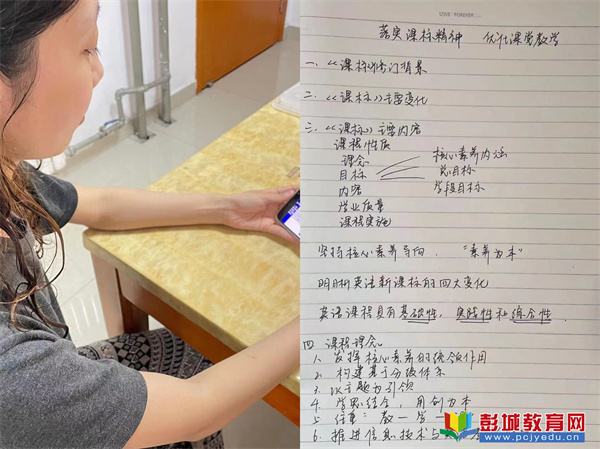 LOVE FOREVER
落实课标精神 优化课堂教学
一、《课标》修订背景
二、《课标》主要变化
三、《课标》主要内容
课程性质
理念 核心素养内涵
目标 总目标
内容 学段目标
学业质量
课程实施
坚持核心素养导向，“素养为本”
明晰英语新课标的四大变化
英语课程具有基础性，实践性和综合性
四 课程理念
1、发挥核心素养的统领作用
2、构建基于分级体系
3、以主题为引领
4 学思结合，用创为本
5 注重：教一学一
6、推进信息技术与
彭城教育网
www.pcjyedu.cn